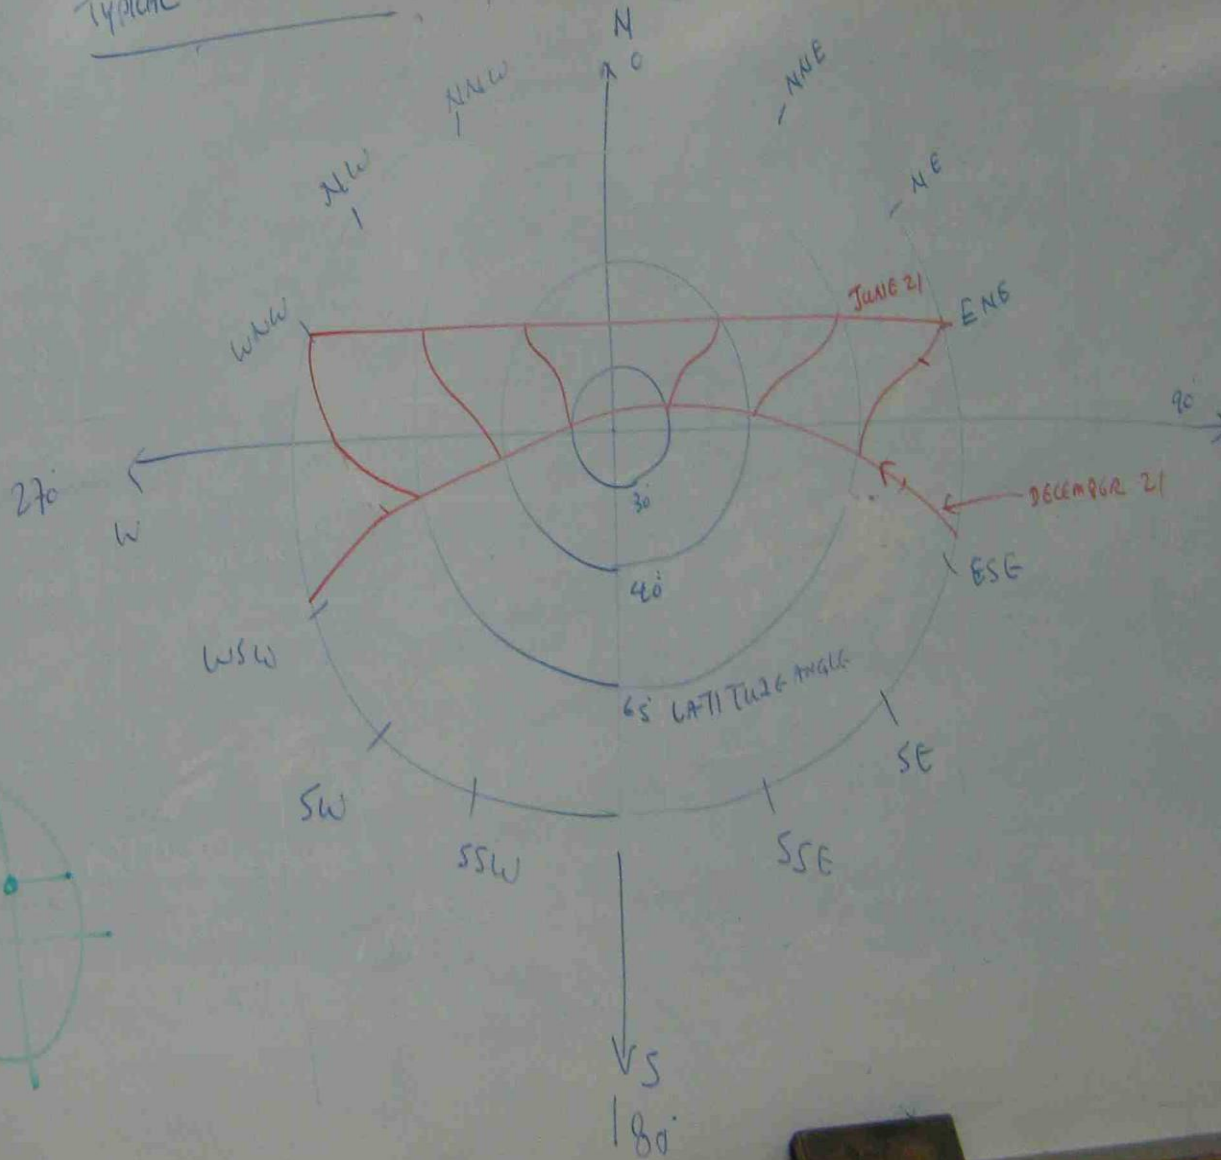 TYPICAL
N
0
NNW
NNE
NW
NE
JUNE 21
WNW
ENE
90°
270°
W
DECEMBER 21
30°
ESE
40°
WSW
65° LATITUDE ANGLE
SE
SW
SSW
SSE
S
180°